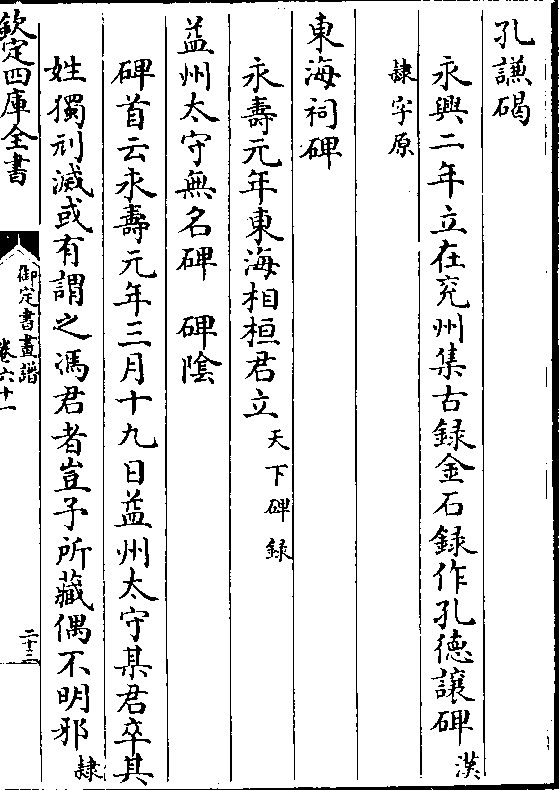 孔謙碣
永興二年立在兖州集古録金石録作孔德讓碑漢
隸字原
東海祠碑
永壽元年東海相桓君立天下碑録
益州太守無名碑 碑陰
碑首云永壽元年三月十九日益州太守某君卒其
姓獨刓滅或有謂之馮君者豈予所藏偶不明邪隸
欽定四庫全書
御定書畫譜
卷六十一
二十三